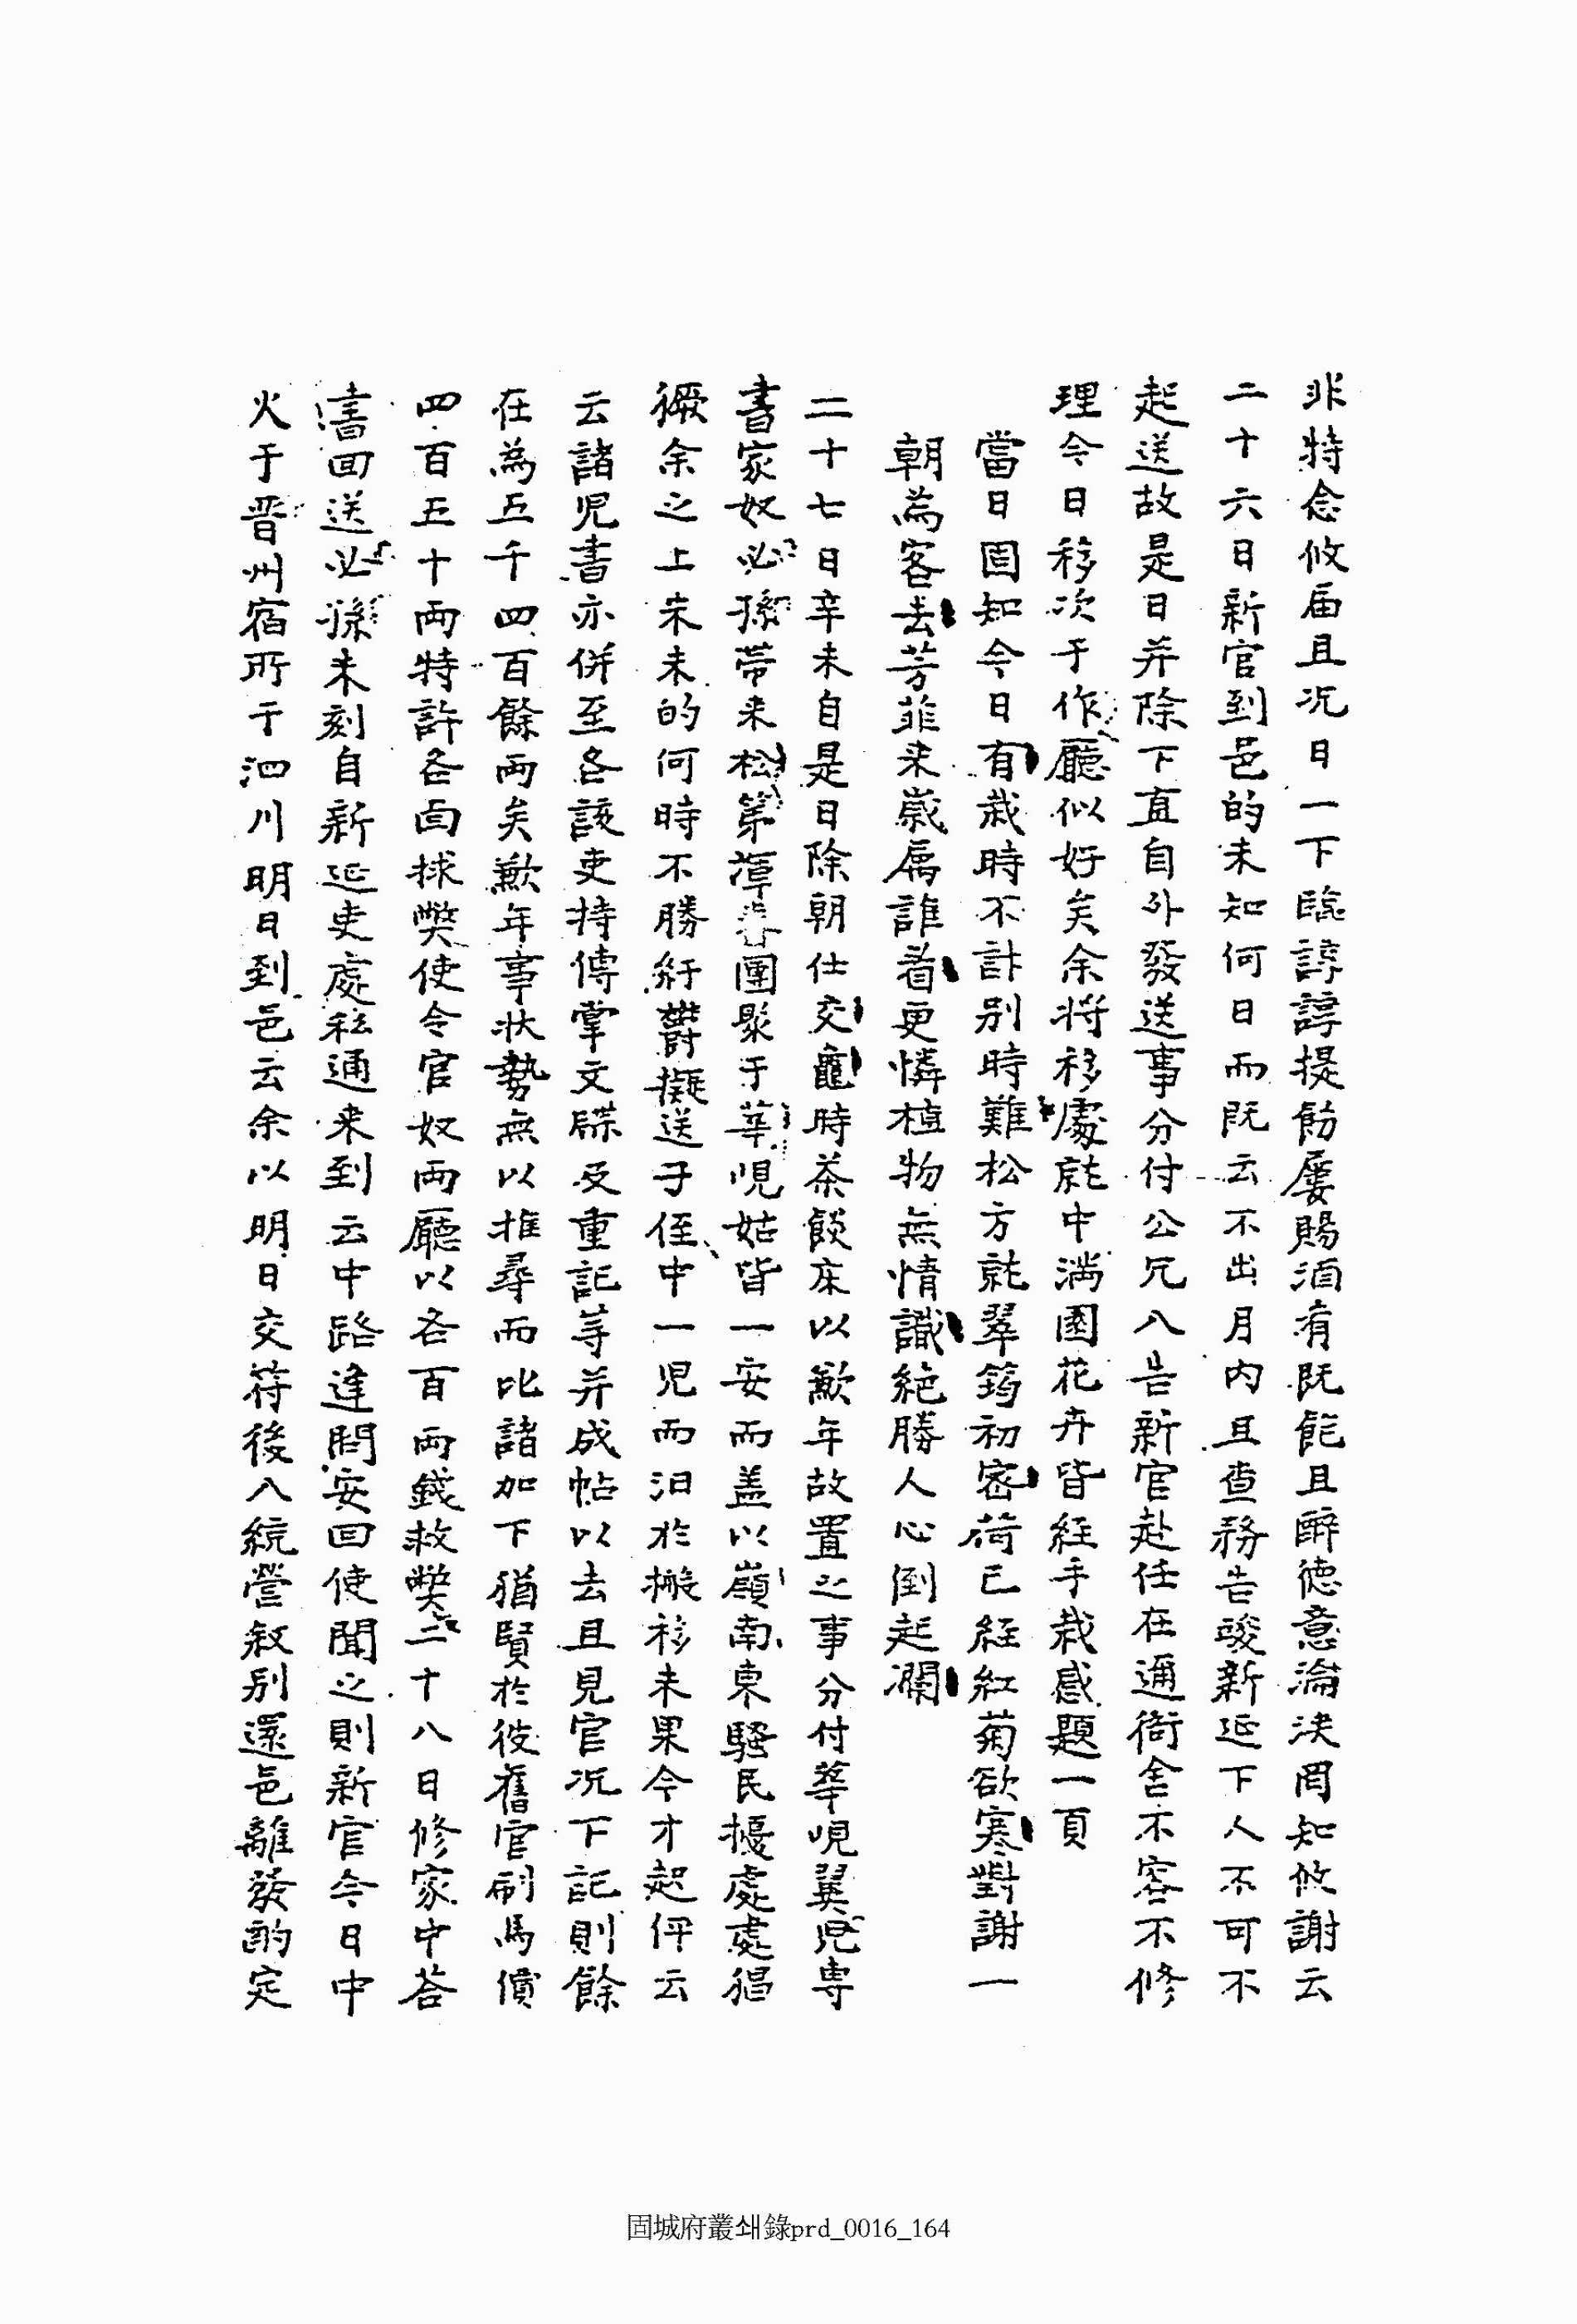 非特念攸届且况日一下臨諄諄提飭屢賜酒肴既飽且醉德意淪浹罔知攸謝云
二十六日新官到邑的未知何日而既云不出月内且查務告竣新延下人不可不
起送故是日并除下直自外發送事分付公兄入告新官赴任在邇衙舍不容不修
理今日移次于作廳似好矣余將移處就中滿園花卉皆経手栽感題一頁
當日固知今日有栽時不計别時難松方就翠筠初密荷已経紅菊欲寒對謝一
朝為客去芳菲来歲属誰着更憐植物無情識絶勝人心倒起瀾
二十七日辛未自是日除朝仕交龜時茶餤床以歉年故置之事分付華唲翼児専
書家奴必孫帯来松第潭春團聚于華唲姑皆一安而盖以嶺南東騷民擾處處猖
獗余之上来未的何時不勝紆欝擬送子侄中一児而汨於搬移未果今才起伻云
云諸児書亦併至各該吏持傳掌文牒及重記等并成帖以去且見官况下記則餘
在為五千四百餘兩矣歉年事狀勢無以推尋而比諸加下猶賢於彼舊官刷馬價
四百五十兩特許各面捄弊使令官奴兩廳以各百兩錢救弊二十八日修家中答
書回送必孫未刻自新延吏處私通来到云中路進問安回使聞之則新官今日中
火于晋州宿所于泗川明日到邑云余以明日交符後入統營叙别還邑離發酌定
固城府叢쇄錄prd_0016_164